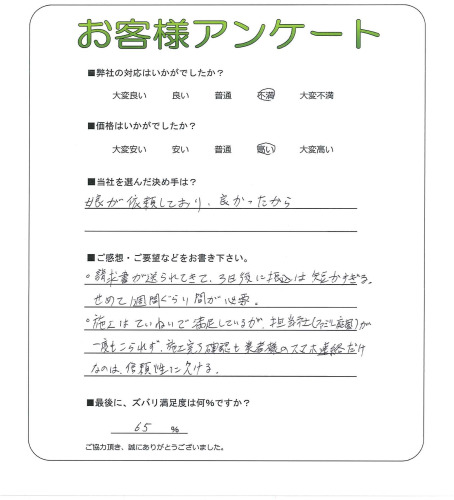 お客様アンケート
■弊社の対応はいかがでしたか？
大変良い 良い 普通 不満 大変不満
■価格はいかがでしたか？
大変安い 安い 普通 高い 大変高い
■当社を選んだ決め手は？
娘が依頼しており、良かったから
■ご感想・ご要望などをお書き下さい。
○請求書が送られてきて、3日後に振込は短かすぎる。
せめて1週間ぐらい間が必要。
○施工はていねいで満足しているが、担当社(庭園)が
一度もこられず、施工完了確認も業者様のスマホ連絡だけ
なのは、信頼性に欠ける。
■最後に、ズバリ満足度は何%ですか？
65 %
ご協力頂き、誠にありがとうございました。